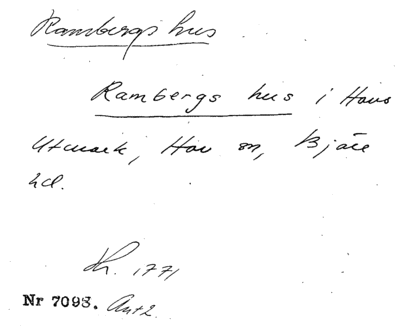 Rambergs hus
Rambergs hus i Hovs
Utmark, Hov sn, Bjäre
hd.
Kh. 1771
Nr 7098. Ant 2.